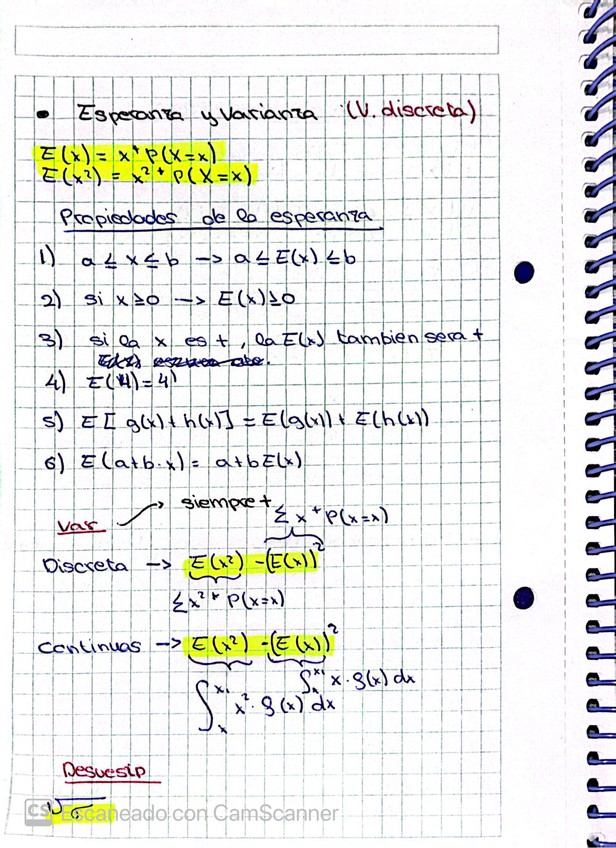 • Esperanza y Varianza (V. discreta)
E(x) = x * P(X=x)
E(x²) = x² * P(X=x)
Propiedades de la esperanza
1) a ≤ x ≤ b → a ≤ E(x) ≤ b
2) si x ≥ 0 → E(x) ≥ 0
3) si la x es +, la E(x) tambien sera +
4) E(4) = 4
5) E[g(x) + h(x)] = E(g(x)) + E(h(x))
6) E(a+b·x) = a+bE(x)
Var → siempre +
Σ x * P(x=x)
Discreta → E(x²) - (E(x))²
Σx² * P(x=x)
continuas → E(x²) - (E(x))²
∫ x · f(x) dx
∫ x² · f(x) dx
CS Escaneado con CamScanner